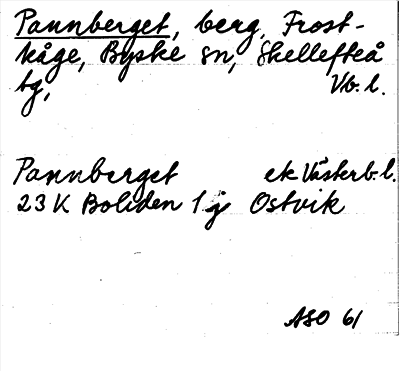 Pannberget, berg, Frost-
kåge, Byske sn, Skellefteå
tg, Vb. l.
Pannberget ek Västerb. l.
23 K Boliden 1 j Ostvik
ASO 61